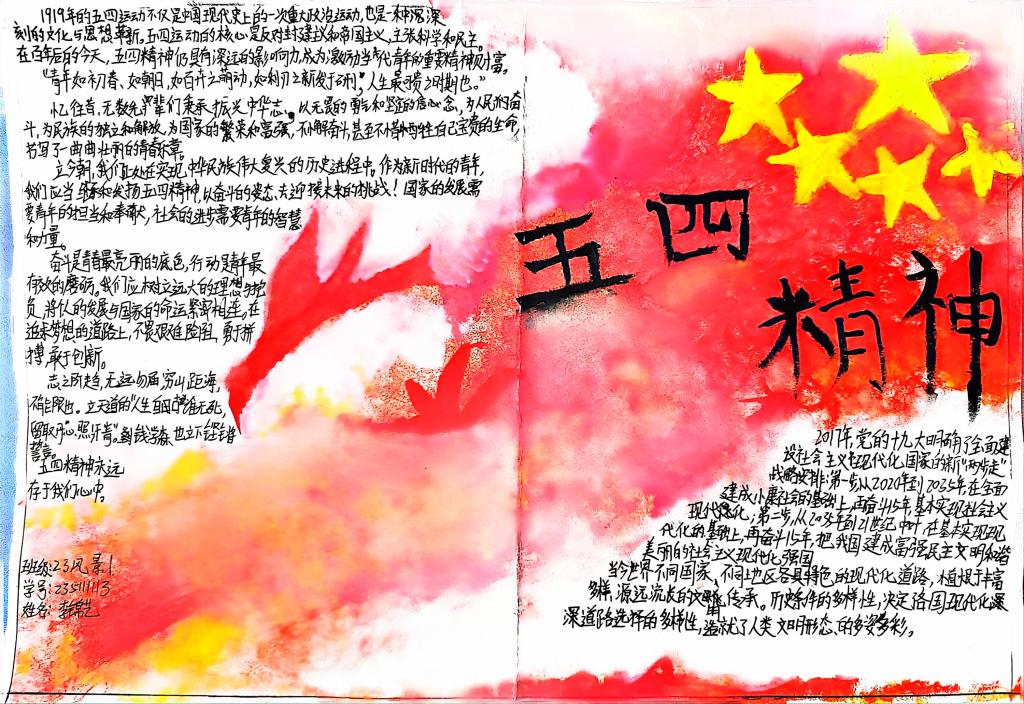 1919年的五四运动不仅是中国现代史上的一次重大政治运动,也是一种深深
刻的文化与思想革新。五四运动的核心是反对封建主义和帝国主义,主张科学和民主。
在百年后的今天,五四精神仍具有深远的影响力,成为激励当代青年的重要精神财富。
"青年如初春、如朝日,如百卉之萌动,如利刃之新发于硎,人生最可贵之时期也。"
忆往昔,无数先辈们秉承"振兴中华志",以无畏的勇气和坚定的信心念,为人民们奋
斗,为民族的独立和解放,为国家的繁荣和富强,不懈奋斗,甚至不惜牺牲自己宝贵的生命,
书写了一曲曲壮丽的青春乐章。
立今朝,我们正处在实现中华民族伟大复兴的历史进程中。作为新时代的青年,
我们应当继承和发扬五四精神,以奋斗的姿态,去迎接未来的挑战!国家的发展需
要青年的担当和奉献,社会的进步需要青年的智慧
和力量。
奋斗是青春最亮丽的底色,行动是青年最
有效的磨砺。我们应树立远大的理想与抱
负,将个人的发展与国家的命运紧密相连。在
追求梦想的道路上,不畏艰难险阻,勇于拼
搏,敢于创新。
志之所趋,无远勿届,穷山距海,
不能限也。文天祥的"人生自古谁无死,
留取丹心照汗青。"到钱学森也立下铿锵
誓言。
五四精神永远
存于我们心中。
班级:23风景1
学号:23511113
姓名:李
五四
精神
2017年,党的十九大明确了全面建
设社会主义现代化国家的新"两步走"
战略安排:第一步从2020年到2035年,在全面
建成小康社会的基础上,再奋斗15年,基本实现社会主义
现代化;第二步,从2035年到21世纪中叶,在基本实现现
代化的基础上,再奋斗15年,把我国建成富强民主文明和谐
美丽的社会主义现代化强国
当今世界不同国家、不同地区各具特色的现代化道路,植根于丰富
多样、源远流长的文明传承。历史条件的多样性,决定各国现代化
道路选择的多样性,造就了人类文明形态的多姿多彩。